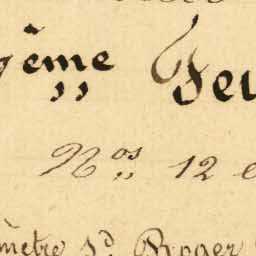 ème Feu
Nos 12 e
mètre Sd. Roger